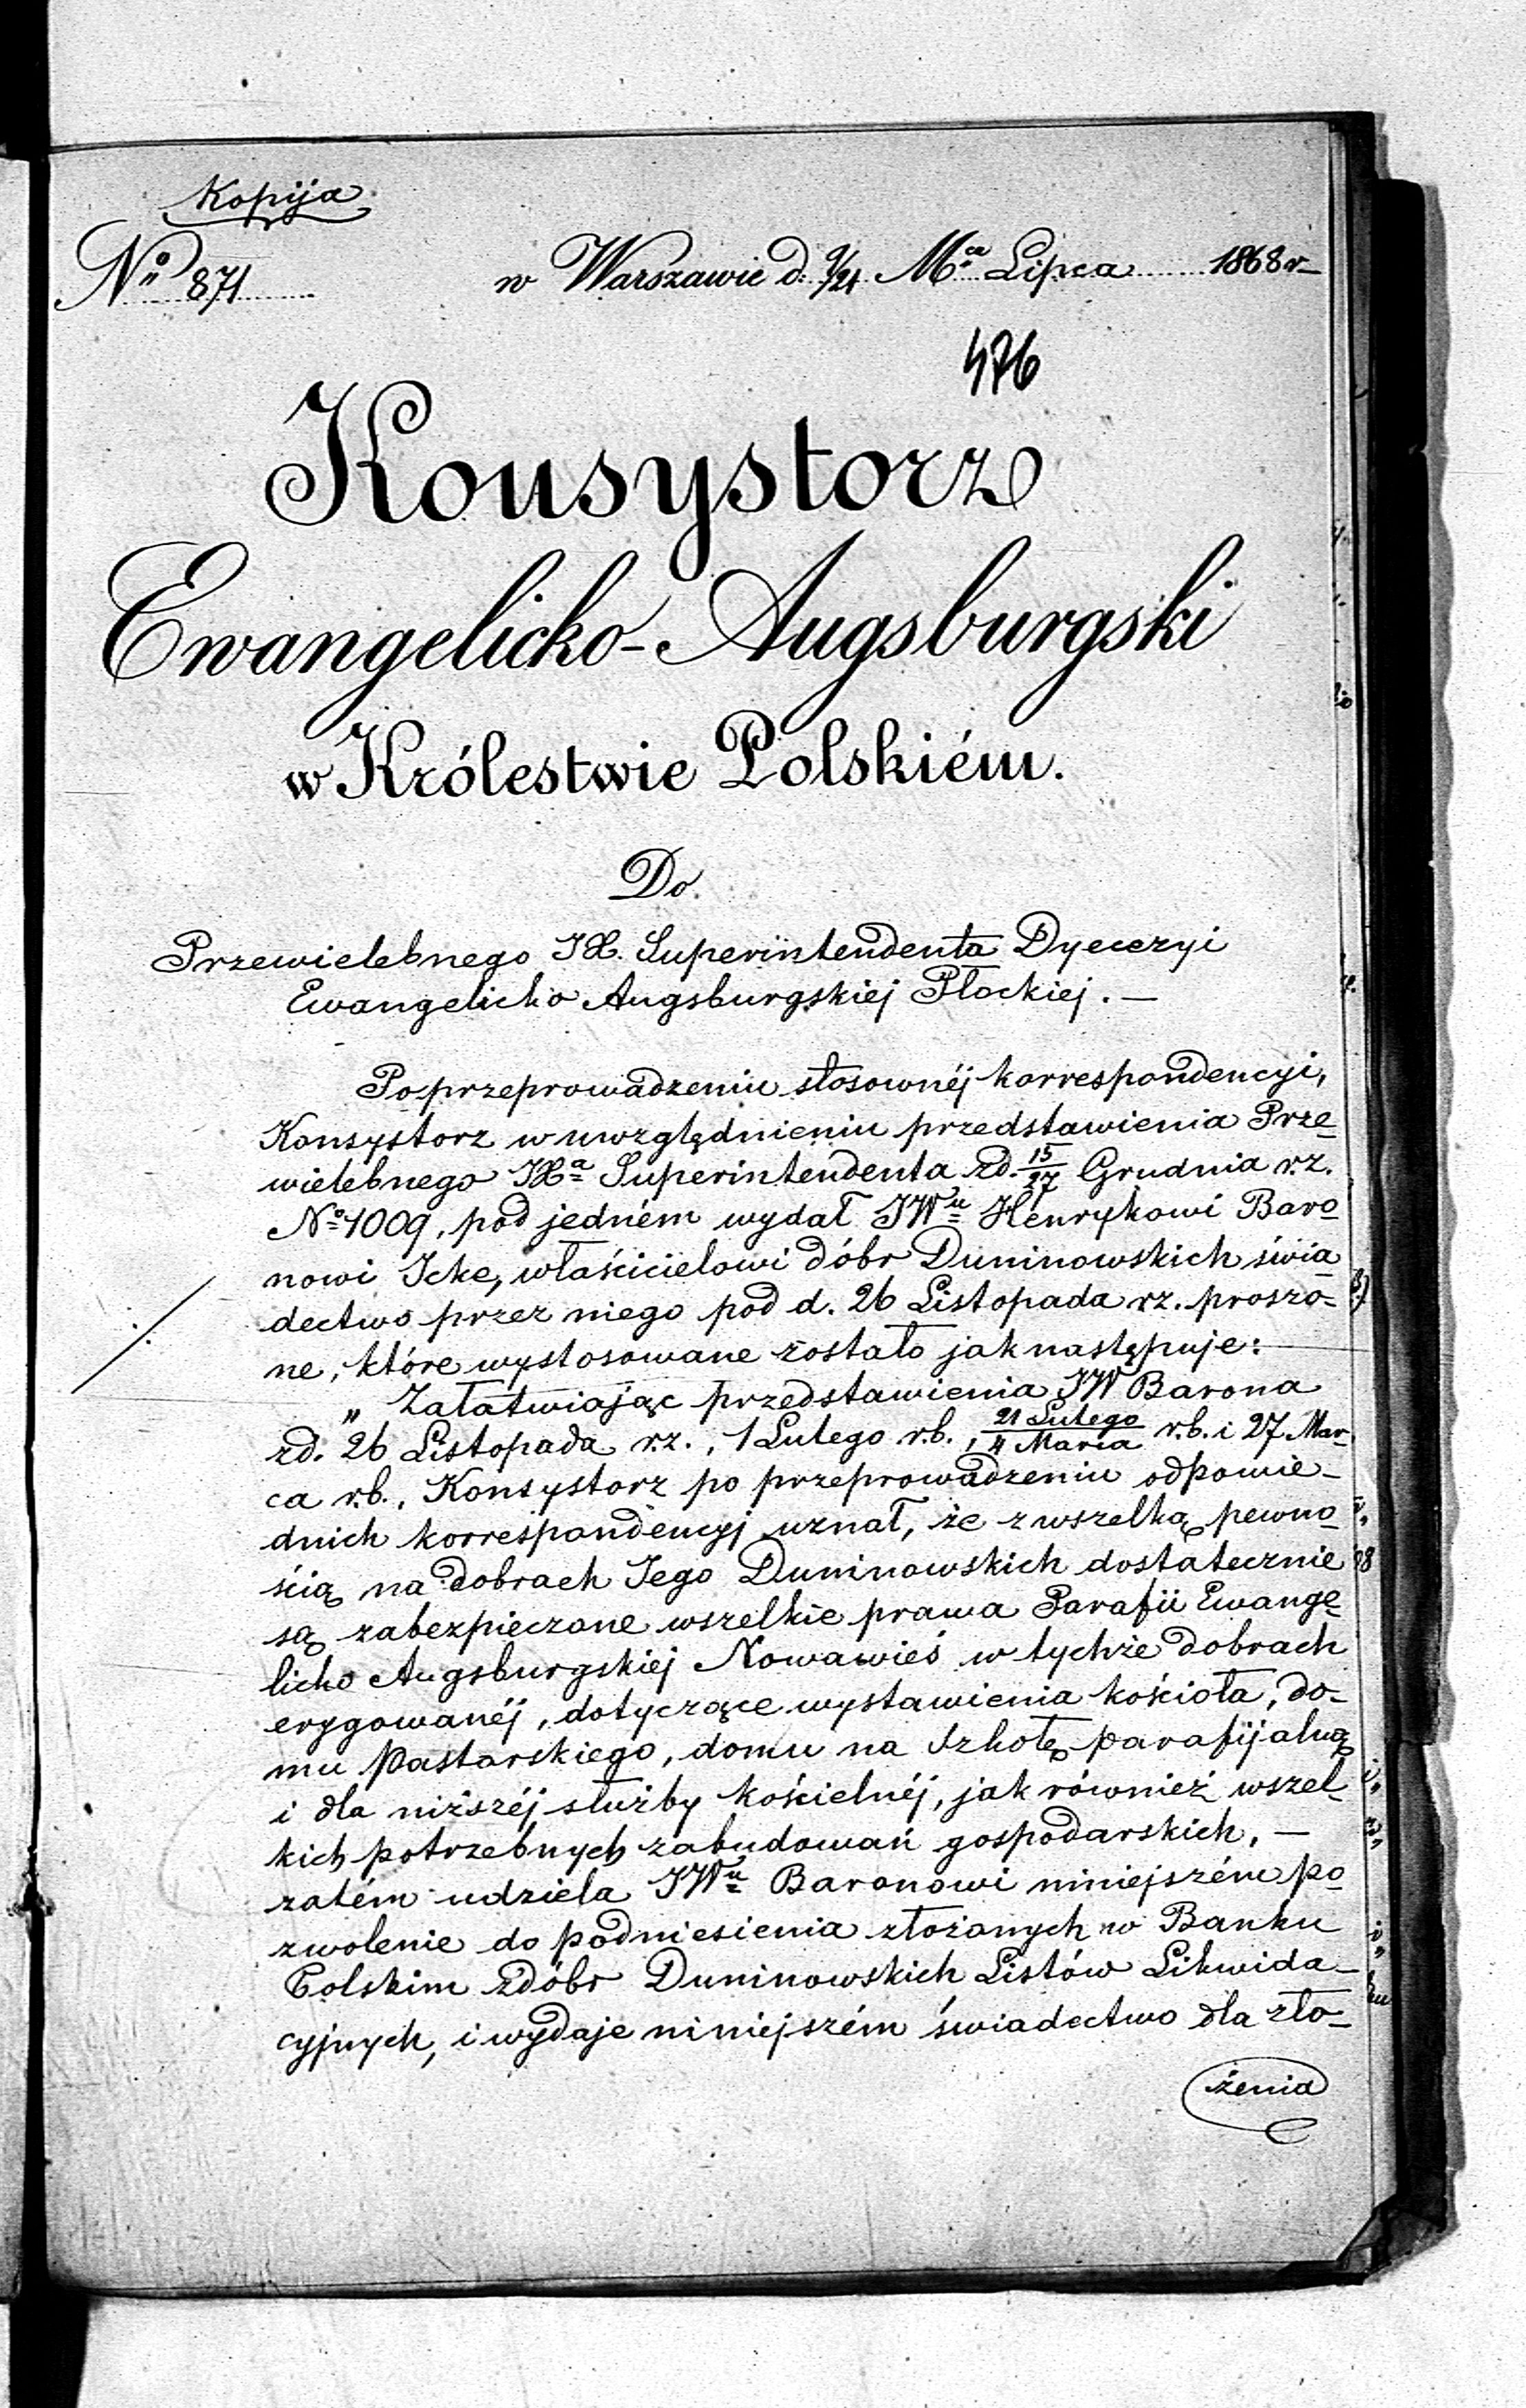 Kopija
№ 871
w Warszawie d. 9/21 Mca Lipca 1868 r
476
Konsystorz
Ewangelicko-Augsburgski
w Królestwie Polskiém.
Do
Przewielebnego JX. Superintendenta Dyecezyi
Ewangelicko Augsburgskiéj Płockiej. —
Po przeprowadzeniu stosownéj korrespondencyi,
Konsystorz w uwzględnieniu przedstawienia Prze-
wielebnego JXa Superintendenta z d. 15/27 Grudnia r.z.
№ 1009, pod jedném wydał JWu Henrykowi Baro-
nowi Icke, właścicielowi dóbr Duninowskich świa-
dectwo przez niego pod d. 26 Listopada r.z. proszo-
ne, które wystosowane zostało jak następuje:
„Załatwiając przedstawienia JW Barona
z d. 26 Listopada r.z., 1 Lutego r.b., 21 Lutego/4 Marca r.b. i 27 Mar-
ca r.b., Konsystorz po przeprowadzeniu odpowie-
dnich korrespondencyj uznał, że z wszelką pewno-
ścią na dobrach Jego Duninowskich dostatecznie
są zabezpieczone wszelkie prawa Parafii Ewange-
licko Augsburgskiéj Nowawieś w tychże dobrach
erygowanéj, dotyczące wystawienia kościoła, do-
mu Pastorskiego, domu na szkołę parafijalną
i dla niższéj służby kościelnéj, jak również wszel-
kich potrzebnych zabudowań gospodarskich, —
zatém udziela JWu Baronowi niniejszém po-
zwolenie do podniesienia złożonych w Banku
Polskim z dóbr Duninowskich Listów Likwida-
cyjnych, i wydaje niniejszém świadectwo dla zło-
żenia